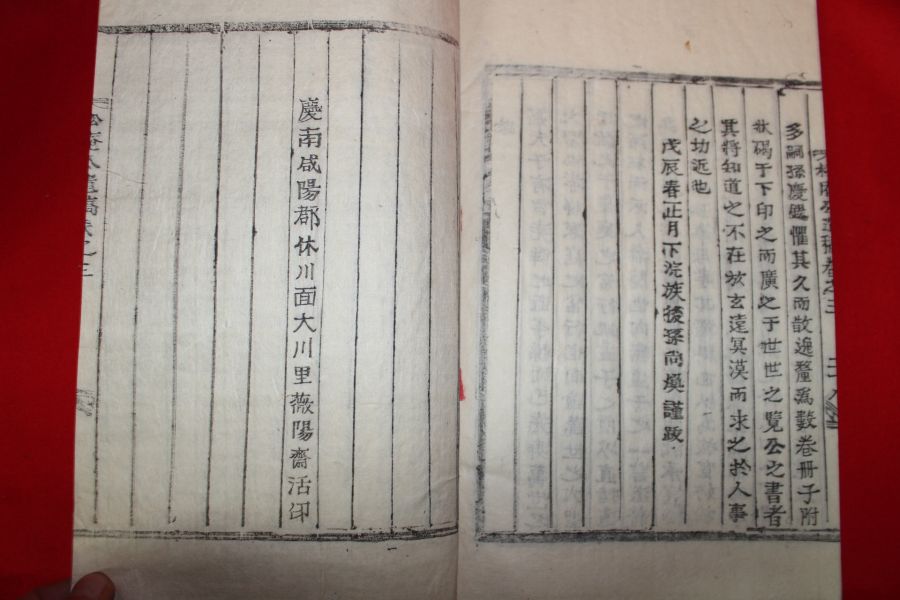 多嗣孫慶 懼其久而散逸釐爲數卷冊子附
狀碣于下印之而廣之于世世之覽公之書者
其將知道之不在於玄遠冥漠而求之於人事
之切近也
戊辰春正月下浣族後孫尙煥謹跋
慶南咸陽郡休川面大川里薇陽齋活印
卷之三